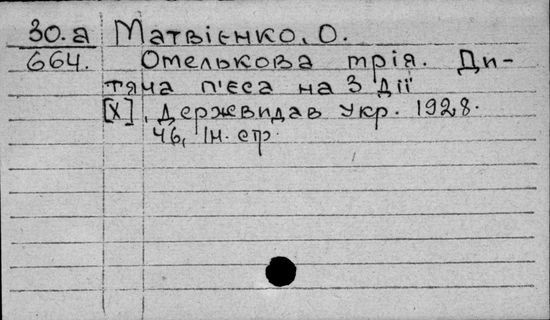 30.а Матвієнко, О.
664. Отелькова трія. Ди-
тяча п'єса на 3 дії
[Х], Держвидав Укр. 1928.
46, Ін. стр.